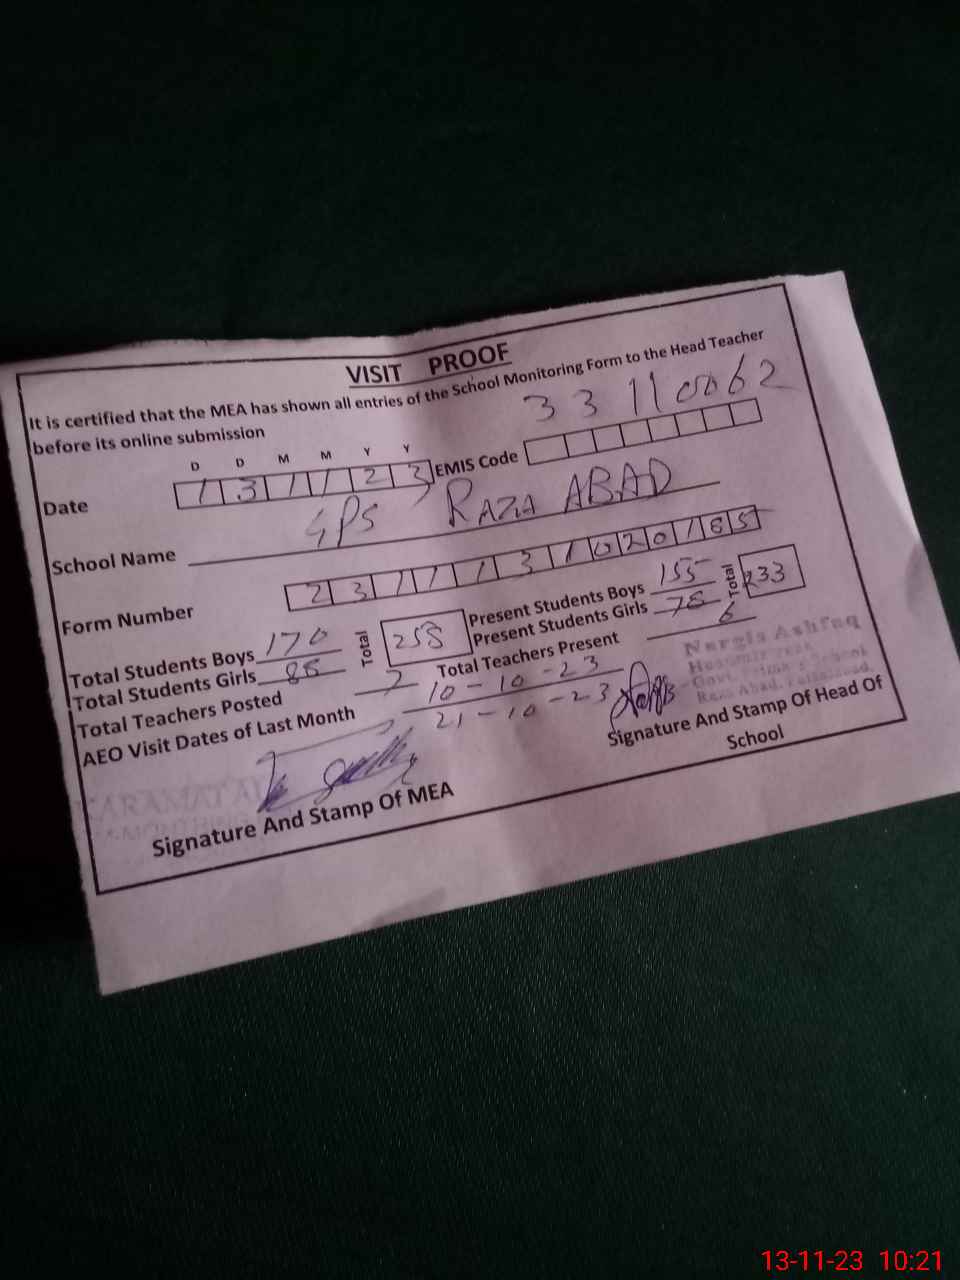 VISIT PROOF
It is certified that the MEA has shown all entries of the School Monitoring Form to the Head Teacher
before its online submission
33110062
D D M M Y Y
Date 131123 EMIS Code
School Name GPS RAZA ABAD
Form Number 2311131020185
Total Students Boys 170 Total 258 Present Students Boys 155 Total 233
Total Students Girls 88 Present Students Girls 78
Total Teachers Posted 7 Total Teachers Present 6
AEO Visit Dates of Last Month 10-10-23
21-10-23
Nargis Ashfaq
Headmistress
Govt. Primary School
Raza Abad, Faisalabad.
Signature And Stamp Of Head Of
School
KARAMAT
Signature And Stamp Of MEA
13-11-23 10:21